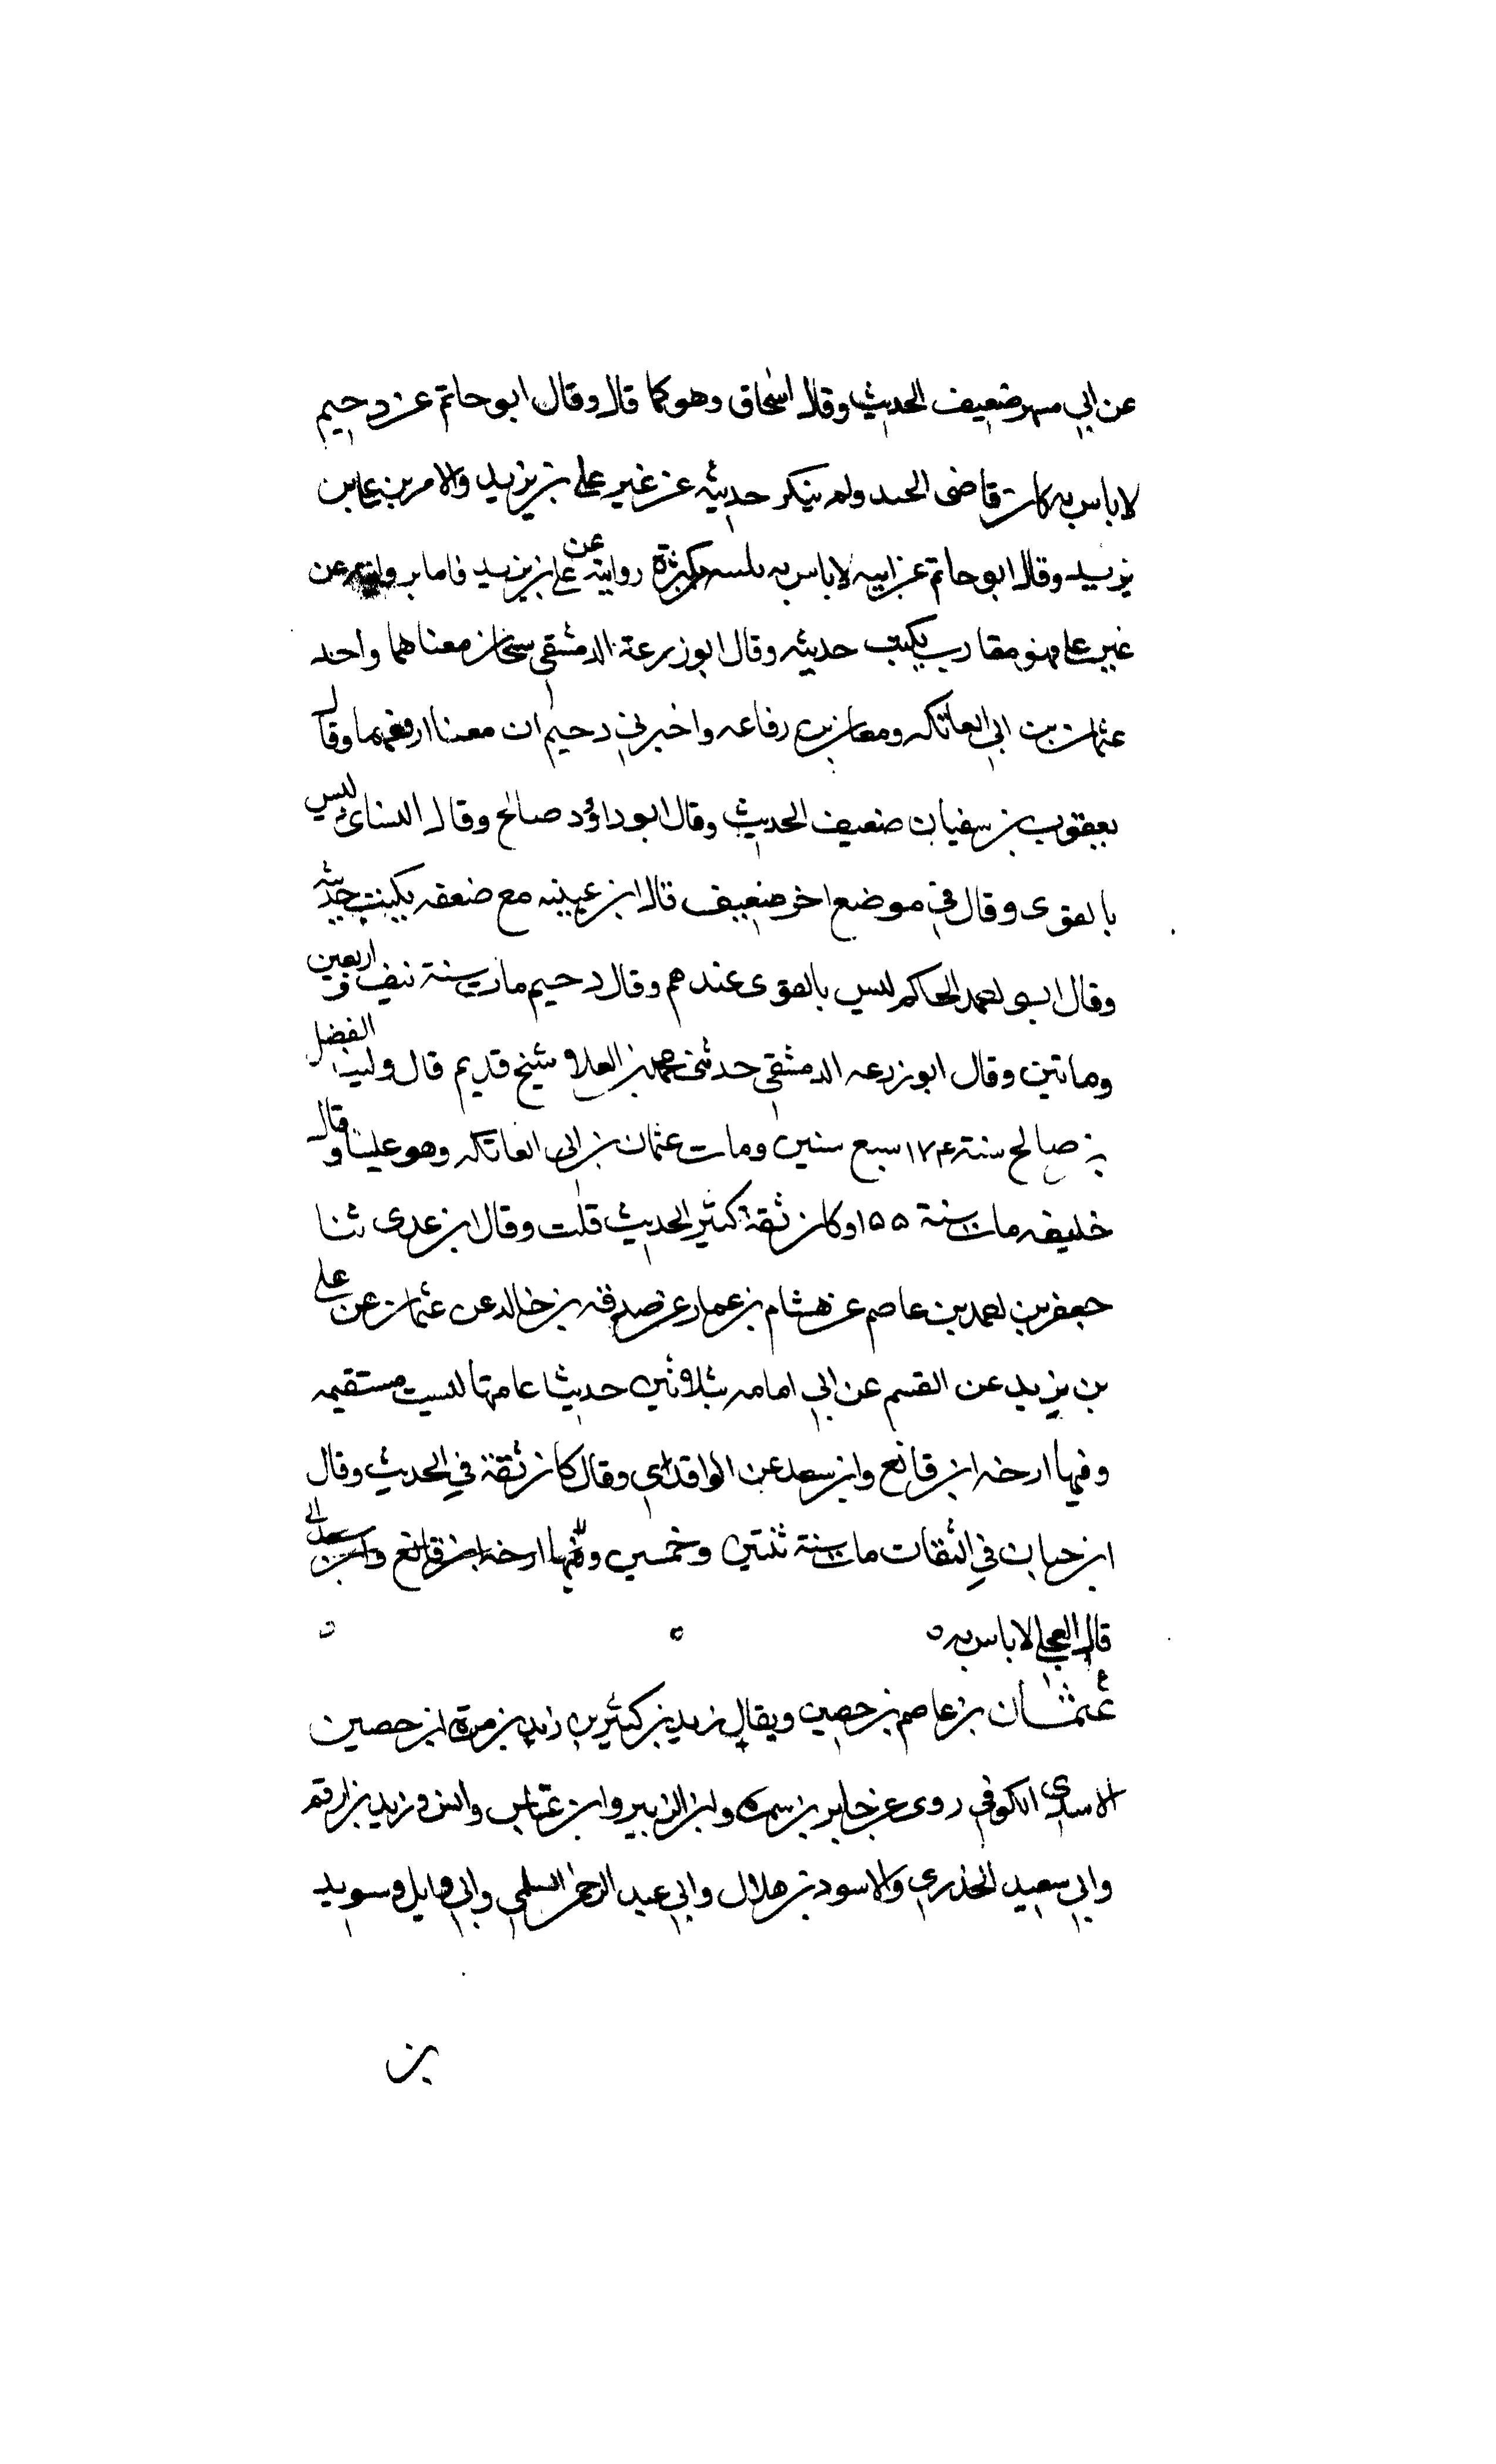 عن ابي مسهر ضعيف الحديث وقال اسحاق وهو كما قال وقال ابو حاتم عن دحيم
لا باس به كان قاضى الجند ولم ينكر حديثه عن غير على بن يزيد والامر من على بن
يزيد وقال ابو حاتم عن ابيه لا باس به بليته من كثرة روايته عن على بن يزيد فاما يروى عن
غير على فهو مقارب يكتب حديثه وقال ابو زرعة الدمشقى معناهما واحد
عثمان بن ابي العاتكه ومعان بن رفاعه واخبرني دحيم ان معنا ارفعهما وقال
يعقوب بن سفيان ضعيف الحديث وقال ابو داؤد صالح وقال النسائ ليس
بالقوى وقال في موضع اخر ضعيف قال ابن عيينه مع ضعفه يكتب حديثه
وقال ابو احمد الحاكم ليس بالقوى عندهم وقال دحيم مات سنة نيف و اربعين
ومائتين وقال ابو زرعه الدمشقى حدثنى محمد بن العلاء شيخ قديم قال ولينا الفضل
بن صالح سنة ١٧٤ سبع سنين ومات عثمان بن ابي العاتكه وهو علينا وقال
خليفه مات سنة ١٥٥ وكان ثقة كثير الحديث قلت وقال ابن عدى ثنا
جعفر بن احمد بن عاصم عن هشام بن عمار عن صدقه بن خالد عن عثمان عن على
بن يزيد عن القسم عن ابي امامه ثلاثين حديثا عامتها ليست مستقيمه
وفيها ارخه ابن قانع وابن سعد عن الواقدي وقال كان ثقة في الحديث وقال
ابن حبان في الثقات مات سنة ثنتين وخمسين وفيها ارخه ابن قانع وابن سعد الى
قال العجلى لا باس به ه ه ه
عثمان بن عاصم بن حصين ويقال زيد بن كثير بن زيد بن مرة ابن حصين
الاسدى الكوفي روى عن جابر بن سمرة وابن الزبير وابن عباس وانس وزيد بن ارقم
وابي سعيد الخدري والاسود بن هلال وابي عبد الرحمن السلمي وابي وايل وسويد
بن